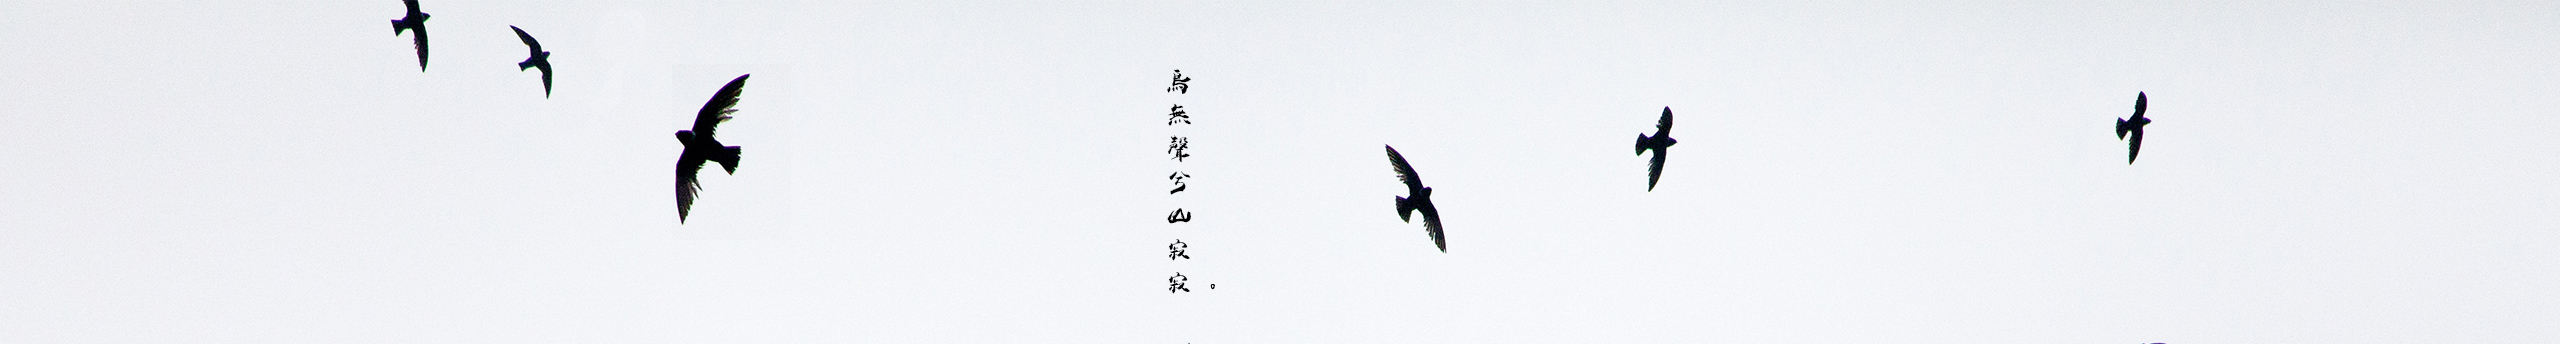 鳥無聲兮山寂寂。